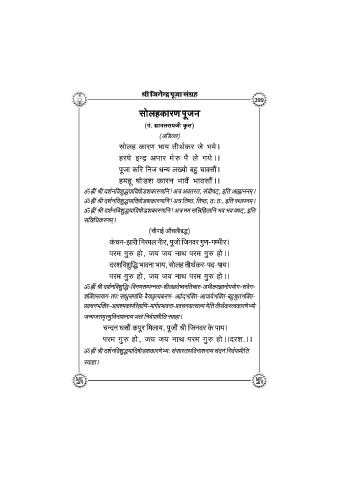 श्री जिनेन्द्र पूजा संग्रह
399
सोलहकारण पूजन
(पं. द्यानतरायजी कृत)
(अडिल्ल)
सोलह कारण भाय तीर्थंकर जे भये।
हरषे इन्द्र अपार मेरु पै ले गये।।
पूजा करि निज धन्य लख्यो बहु चावसौं।
हमहू षोडश कारन भावैं भावसौं।।
ॐ ह्रीं श्री दर्शनविशुद्ध्यादिषोडशकारणानि ! अत्र अवतरत, संवौषट्, इति आह्वाननम्।
ॐ ह्रीं श्री दर्शनविशुद्ध्यादिषोडशकारणानि ! अत्र तिष्ठत, तिष्ठत, ठः ठः, इति स्थापनम्।
ॐ ह्रीं श्री दर्शनविशुद्ध्यादिषोडशकारणानि ! अत्र मम सन्निहितानि भव भव वषट्, इति
सन्निधिकरणम्।
(चौपाई आँचलीबद्ध)
कंचन-झारी निरमल नीर, पूजों जिनवर गुण-गम्भीर।
परम गुरु हो, जय जय नाथ परम गुरु हो।।
दरशविशुद्धि भावना भाय, सोलह तीर्थंकर-पद-पाय।
परम गुरु हो, जय जय नाथ परम गुरु हो।।
ॐ ह्रीं श्री दर्शनविशुद्धि-विनयसम्पन्नता-शीलव्रतेष्वनतिचार-अभीक्ष्णज्ञानोपयोग-संवेग-
शक्तितस्त्याग-तपः साधुसमाधि-वैयावृत्यकरण-अर्हद्भक्ति-आचार्यभक्ति-बहुश्रुतभक्ति-
प्रवचनभक्ति-आवश्यकापरिहाणि-मार्गप्रभावना-प्रवचनवात्सल्य
जन्मजरामृत्युविनाशनाय जलं निर्वपामीति स्वाहा।
चन्दन घसौं कपूर मिलाय, पूजौं श्री जिनवर के पाय।
परम गुरु हो, जय जय नाथ परम गुरु हो।।दरश.।।
ॐ ह्रीं श्री दर्शनविशुद्ध्यादिषोडशकारणेभ्यः संसारतापविनाशनाय चंदनं निर्वपामीति
स्वाहा।